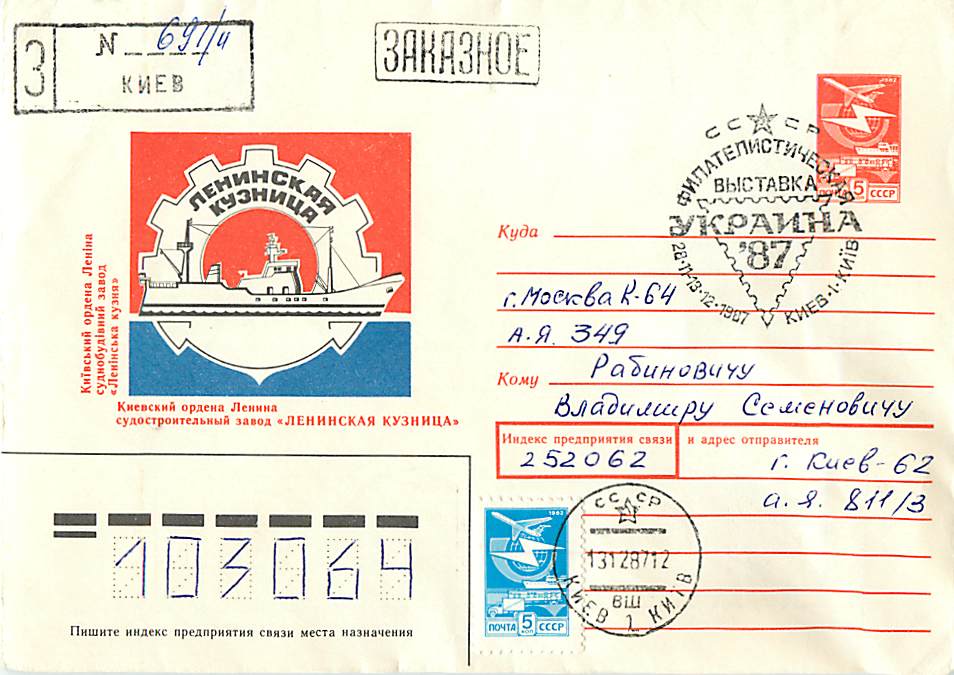 З
N 691/и
КИЕВ
ЗАКАЗНОЕ
1982
ПОЧТА 5 КОП СССР
СССР
ФИЛАТЕЛИСТИЧЕСКАЯ
ВЫСТАВКА
УКРАИНА
'87
28·11-13·12·1987
КИЕВ·1·КИЇВ
ЛЕНИНСКАЯ
КУЗНИЦА
Київський ордена Леніна
суднобудівний завод
«Ленінська кузня»
Киевский ордена Ленина
судостроительный завод «ЛЕНИНСКАЯ КУЗНИЦА»
Куда
г. Москва К-64
А.Я. 349
Кому Рабиновичу
Владимиру Семеновичу
Индекс предприятия связи и адрес отправителя
252062
г. Киев-62
а.я. 811/3
103064
Пишите индекс предприятия связи места назначения
1982
ПОЧТА 5 КОП СССР
СССР
13128712
ВШ
КИЕВ 1 КИЇВ